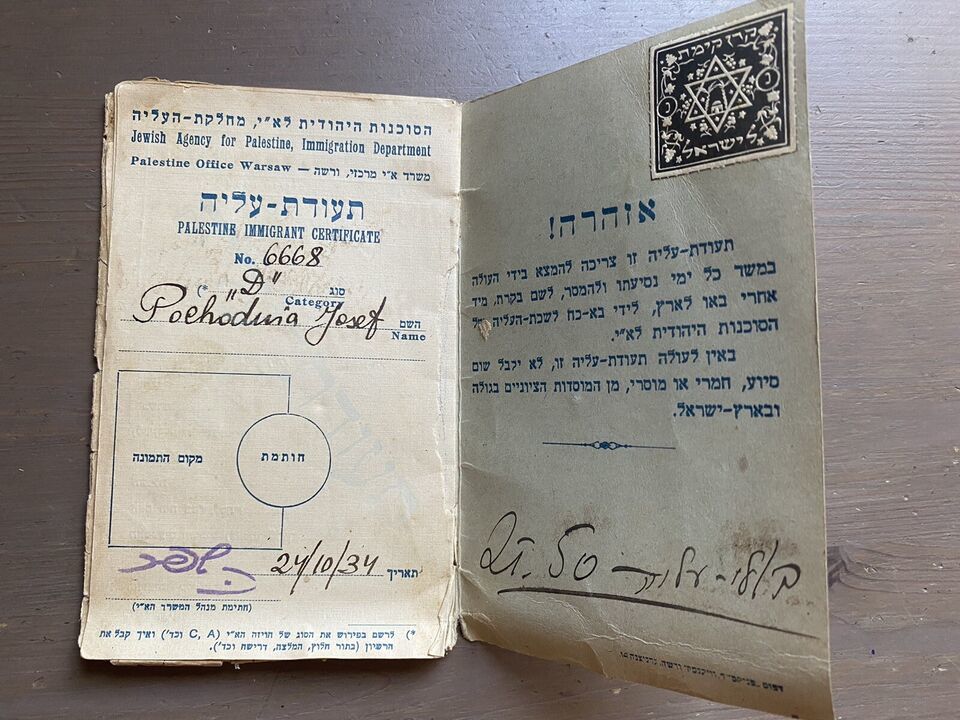 הסוכנות היהודית לא"י, מחלקת-העליה
Jewish Agency for Palestine, Immigration Department
Palestine Office Warsaw — משרד א"י מרכזי, ורשה
תעודת-עליה
PALESTINE IMMIGRANT CERTIFICATE
No. 6668
(* „D" סוג
Category
Pochodnia Josef השם
Name
מקום התמונה
חותמת
24/10/34 תאריך
(חתימת מנהל המשרד הא"י)
*) לרשם בפירוש את הסוג של הויזה הא"י (C, A וכד') ואיך קבל את
הרשיון (בתור חלוץ, המלצה, דרישה וכד').
קרן קימת
לישראל
אזהרה!
תעודת-עליה זו צריכה להמצא בידי העולה
במשך כל ימי נסיעתו ולהמסר, לשם בקרת, מיד
אחרי באו לארץ, לידי בא-כח לשכת-העליה של
הסוכנות היהודית לא"י.
באין לעולה תעודת-עליה זו, לא יקבל שום
סיוע, חמרי או מוסרי, מן המוסדות הציוניים בגולה
ובארץ-ישראל.
דפוס ורשה